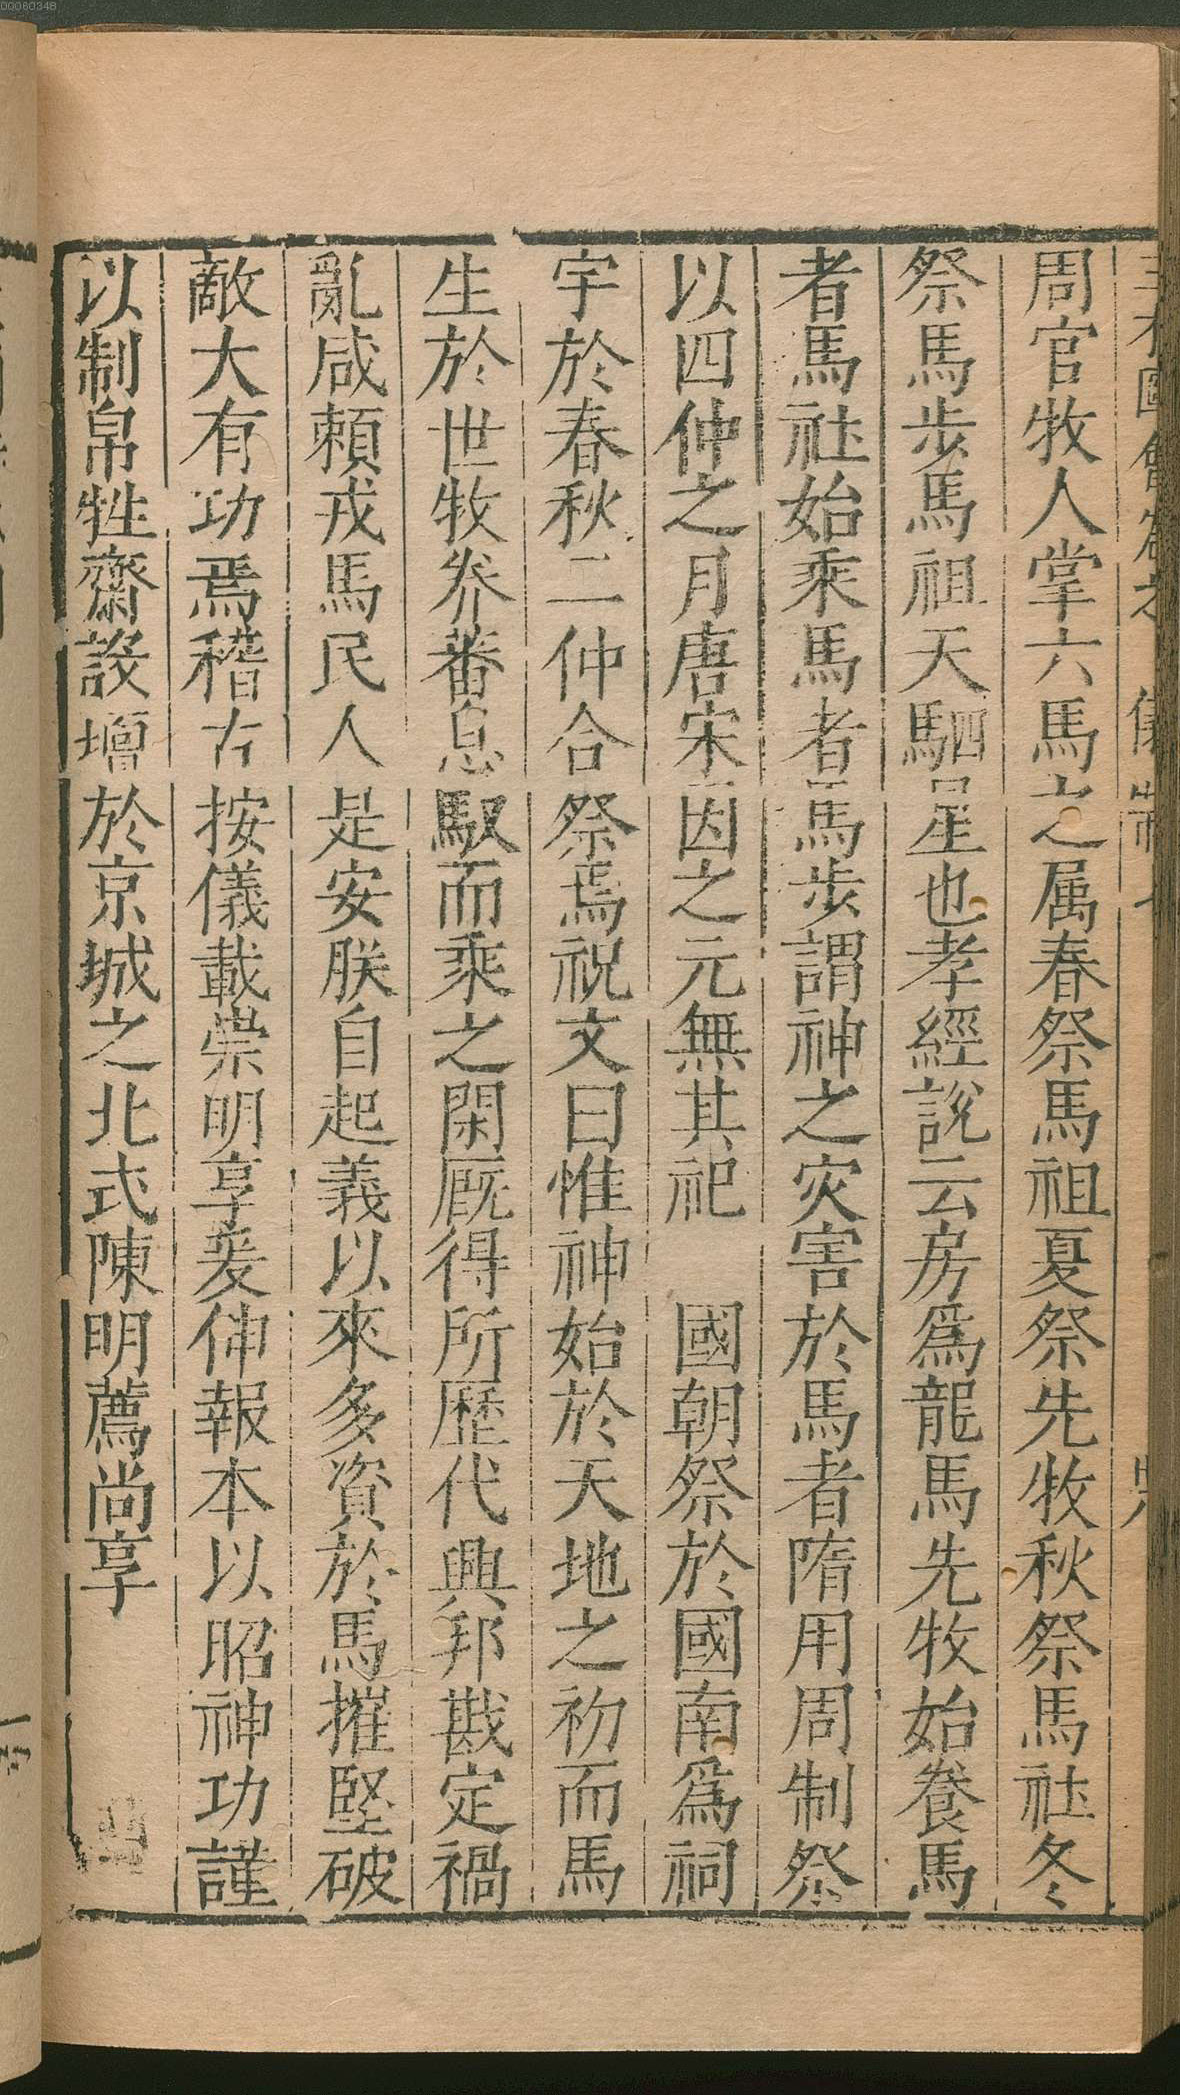 周官牧人掌六馬之属春祭馬祖夏祭先牧秋祭馬社冬
祭馬步馬祖天駟星也孝經説云房爲龍馬先牧始養馬
者馬社始乘馬者馬步謂神之灾害於馬者隋用周制祭
以四仲之月唐宋因之元無其祀 國朝祭於國南爲祠
宇於春秋二仲合祭焉祝文曰惟神始於天地之初而馬
生於世牧养蕃息馭而乘之閑厩得所歴代興邦戡定禍
亂咸頼戎馬民人是安朕自起義以來多資於馬摧堅破
敵大有功焉稽古按儀載崇明享爰伸報本以昭神功謹
以制帛牲齋設壇於京城之北式陳明薦尚享
00060348